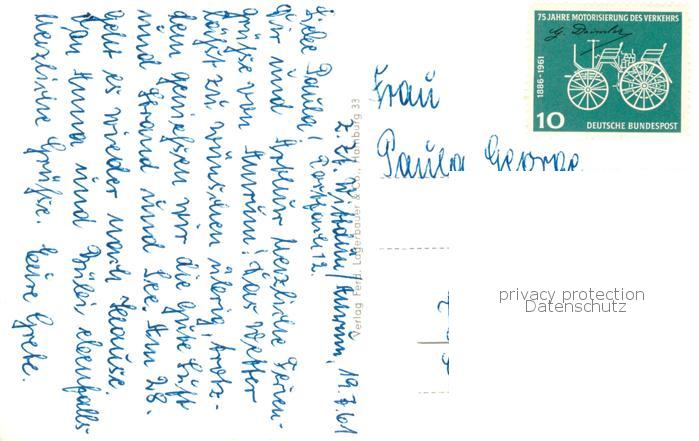 z. Zt. Wittdün/Amrum, 19.7.61
Postfach 12.
Liebe Paula,
Dir und Arthur herzliche Ferien-
grüße von Amrum! Das Wetter
läßt zu wünschen übrig, trotz-
dem genießen wir die gute Luft
und Strand und See. Am 28.
geht es wieder nach Hause.
Von Anna und ebenfalls
herzliche Grüße. Deine Grete.
Verlag Ferd. Lagerbauer & Co., Hamburg 33
Frau
Paula George
75 JAHRE MOTORISIERUNG DES VERKEHRS
G. Daimler
1886-1961
10 DEUTSCHE BUNDESPOST
privacy protection
Datenschutz